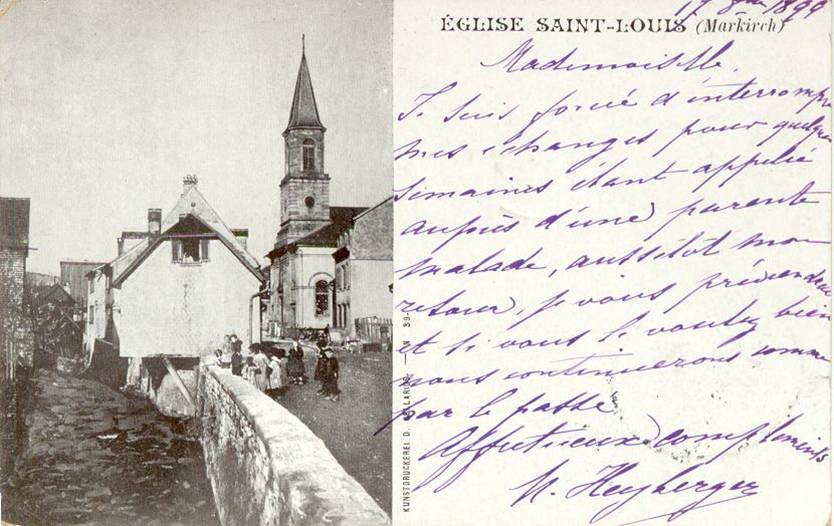 1899
ÉGLISE SAINT-LOUIS (Markirch)
Mademoiselle,
Je suis forcée d'interrompre
mes échanges pour quelques
semaines étant appelée
auprès d'une parente
malade, aussitôt mon
retour, je vous préviendrai
et si vous le voulez bien
nous continuerons comme
par le passé
Affectueux compliments
Heyberger
KUNSTDRUCKEREI D.